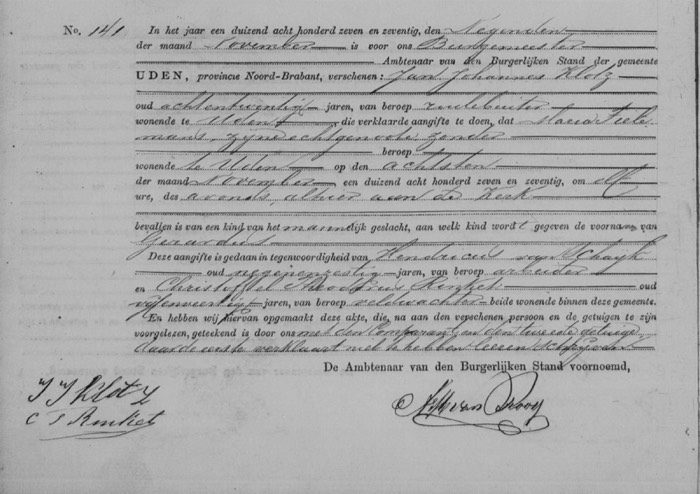 No. 141 In het jaar een duizend acht honderd zeven en zeventig, den Negenden
der maand November is voor ons Burgemeester
Ambtenaar van den Burgerlijken Stand der gemeente
UDEN, provincie Noord-Brabant, verschenen: Jan Johannes Klotz
oud achtentwintig jaren, van beroep
wonende te Uden die verklaarde aangifte te doen, dat Maria Tiele
mans, zijne echtgenoote, zonder
beroep
wonende te Uden op den achtsten
der maand November, een duizend acht honderd zeven en zeventig, om elf
ure, des avonds, alhier aan de Kerk
bevallen is van een kind van het mannelijk geslacht, aan welk kind wordt gegeven de voornaam van
Gerardus
Deze aangifte is gedaan in tegenwoordigheid van Hendricus van Schayk
oud negenenzestig jaren, van beroep arbeider
en Christoffel Theodorus Rinket oud
vijfenveertig jaren, van beroep veldwachter beide wonende binnen deze gemeente.
En hebben wij hiervan opgemaakt deze akte, die, na aan den verschenen persoon en de getuigen te zijn
voorgelezen, geteekend is door ons met den Comparant en den tweede getuige
daar de eerste verklaart niet te hebben leeren schrijven
De Ambtenaar van den Burgerlijken Stand voornoemd,
J J Klotz
C T Rinket